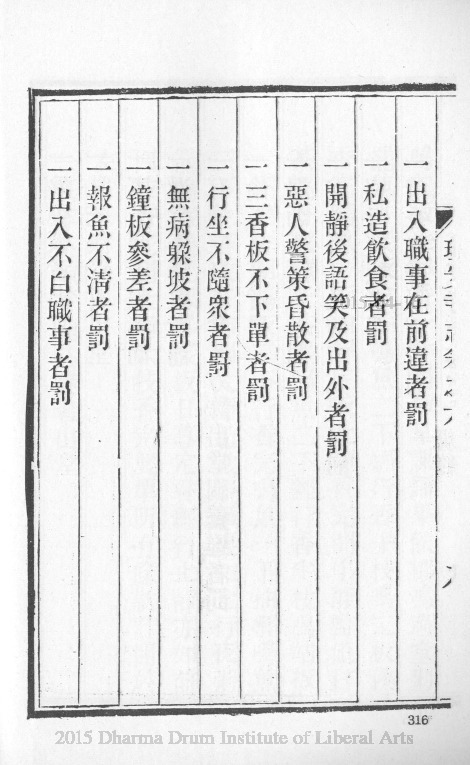 一出入職事在前違者罰
一私造飲食者罰
一開靜後語笑及出外者罰
一惡人警策昏散者罰
一三香板不下單者罰
一行坐不隨衆者罸
一無病躲坡者罰
一鐘板參差者罰
一報魚不清者罰
一出入不白職事者罰
316
2015 Dharma Drum Institute of Liberal Arts